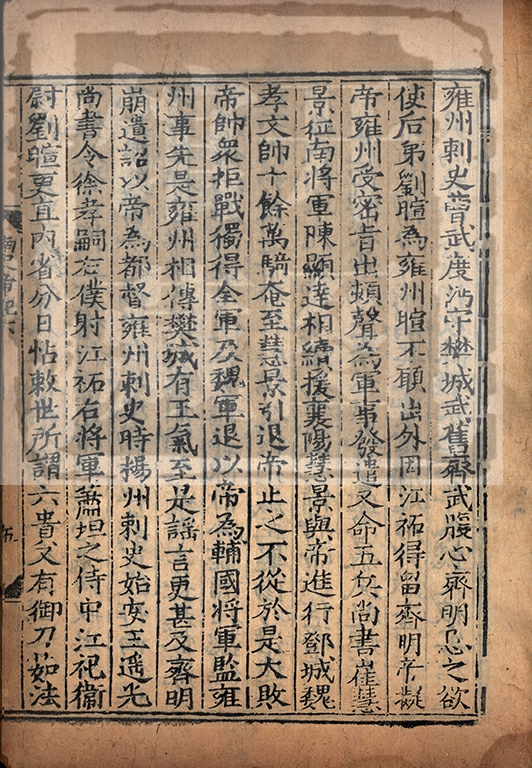 雍州刺史曹武度沔守樊城武舊齋武腹心齊明忌之欲
使后弟劉暄為雍州暄不願出外因江祏得留齊明帝擬
帝雍州受密旨出頓聲為軍事發遣又命五兵尚書崔慧
景征南將軍陳顯達相續援襄陽慧景與帝進行鄧城魏
孝文帥十餘萬騎奄至慧景引退帝止之不從於是大敗
帝帥衆拒戰獨得全軍及魏軍退以帝為輔國將軍監雍
州事先是雍州相傳樊城有王氣至是謡言更甚及齊明
崩遺詔以帝為都督雍州刺史時楊州刺史始安王遥光
尚書令徐孝嗣左僕射江祏右將軍蕭坦之侍中江祀衞
尉劉暄更直内省分日帖敕世所謂六貴又有御刀茹法